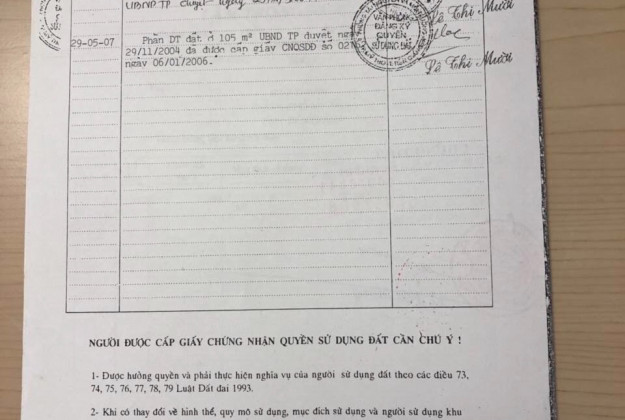 UBND TP duyệt ngày
VĂN PHÒNG
ĐĂNG KÝ
QUYỀN
SỬ DỤNG ĐẤT
Lê Thị Mười
29-05-07
Phần DT đất ở 105 m² UBND TP duyệt
29/11/2004 đã được cấp giấy CNQSDĐ số
ngày 06/01/2006.
Lê Thị Mười
NGƯỜI ĐƯỢC CẤP GIẤY CHỨNG NHẬN QUYỀN SỬ DỤNG ĐẤT CẦN CHÚ Ý !
1- Được hưởng quyền và phải thực hiện nghĩa vụ của người sử dụng đất theo các điều 73,
74, 75, 76, 77, 78, 79 Luật Đất đai 1993.
2- Khi có thay đổi về hình thể, quy mô sử dụng, mục đích sử dụng và người sử dụng khu